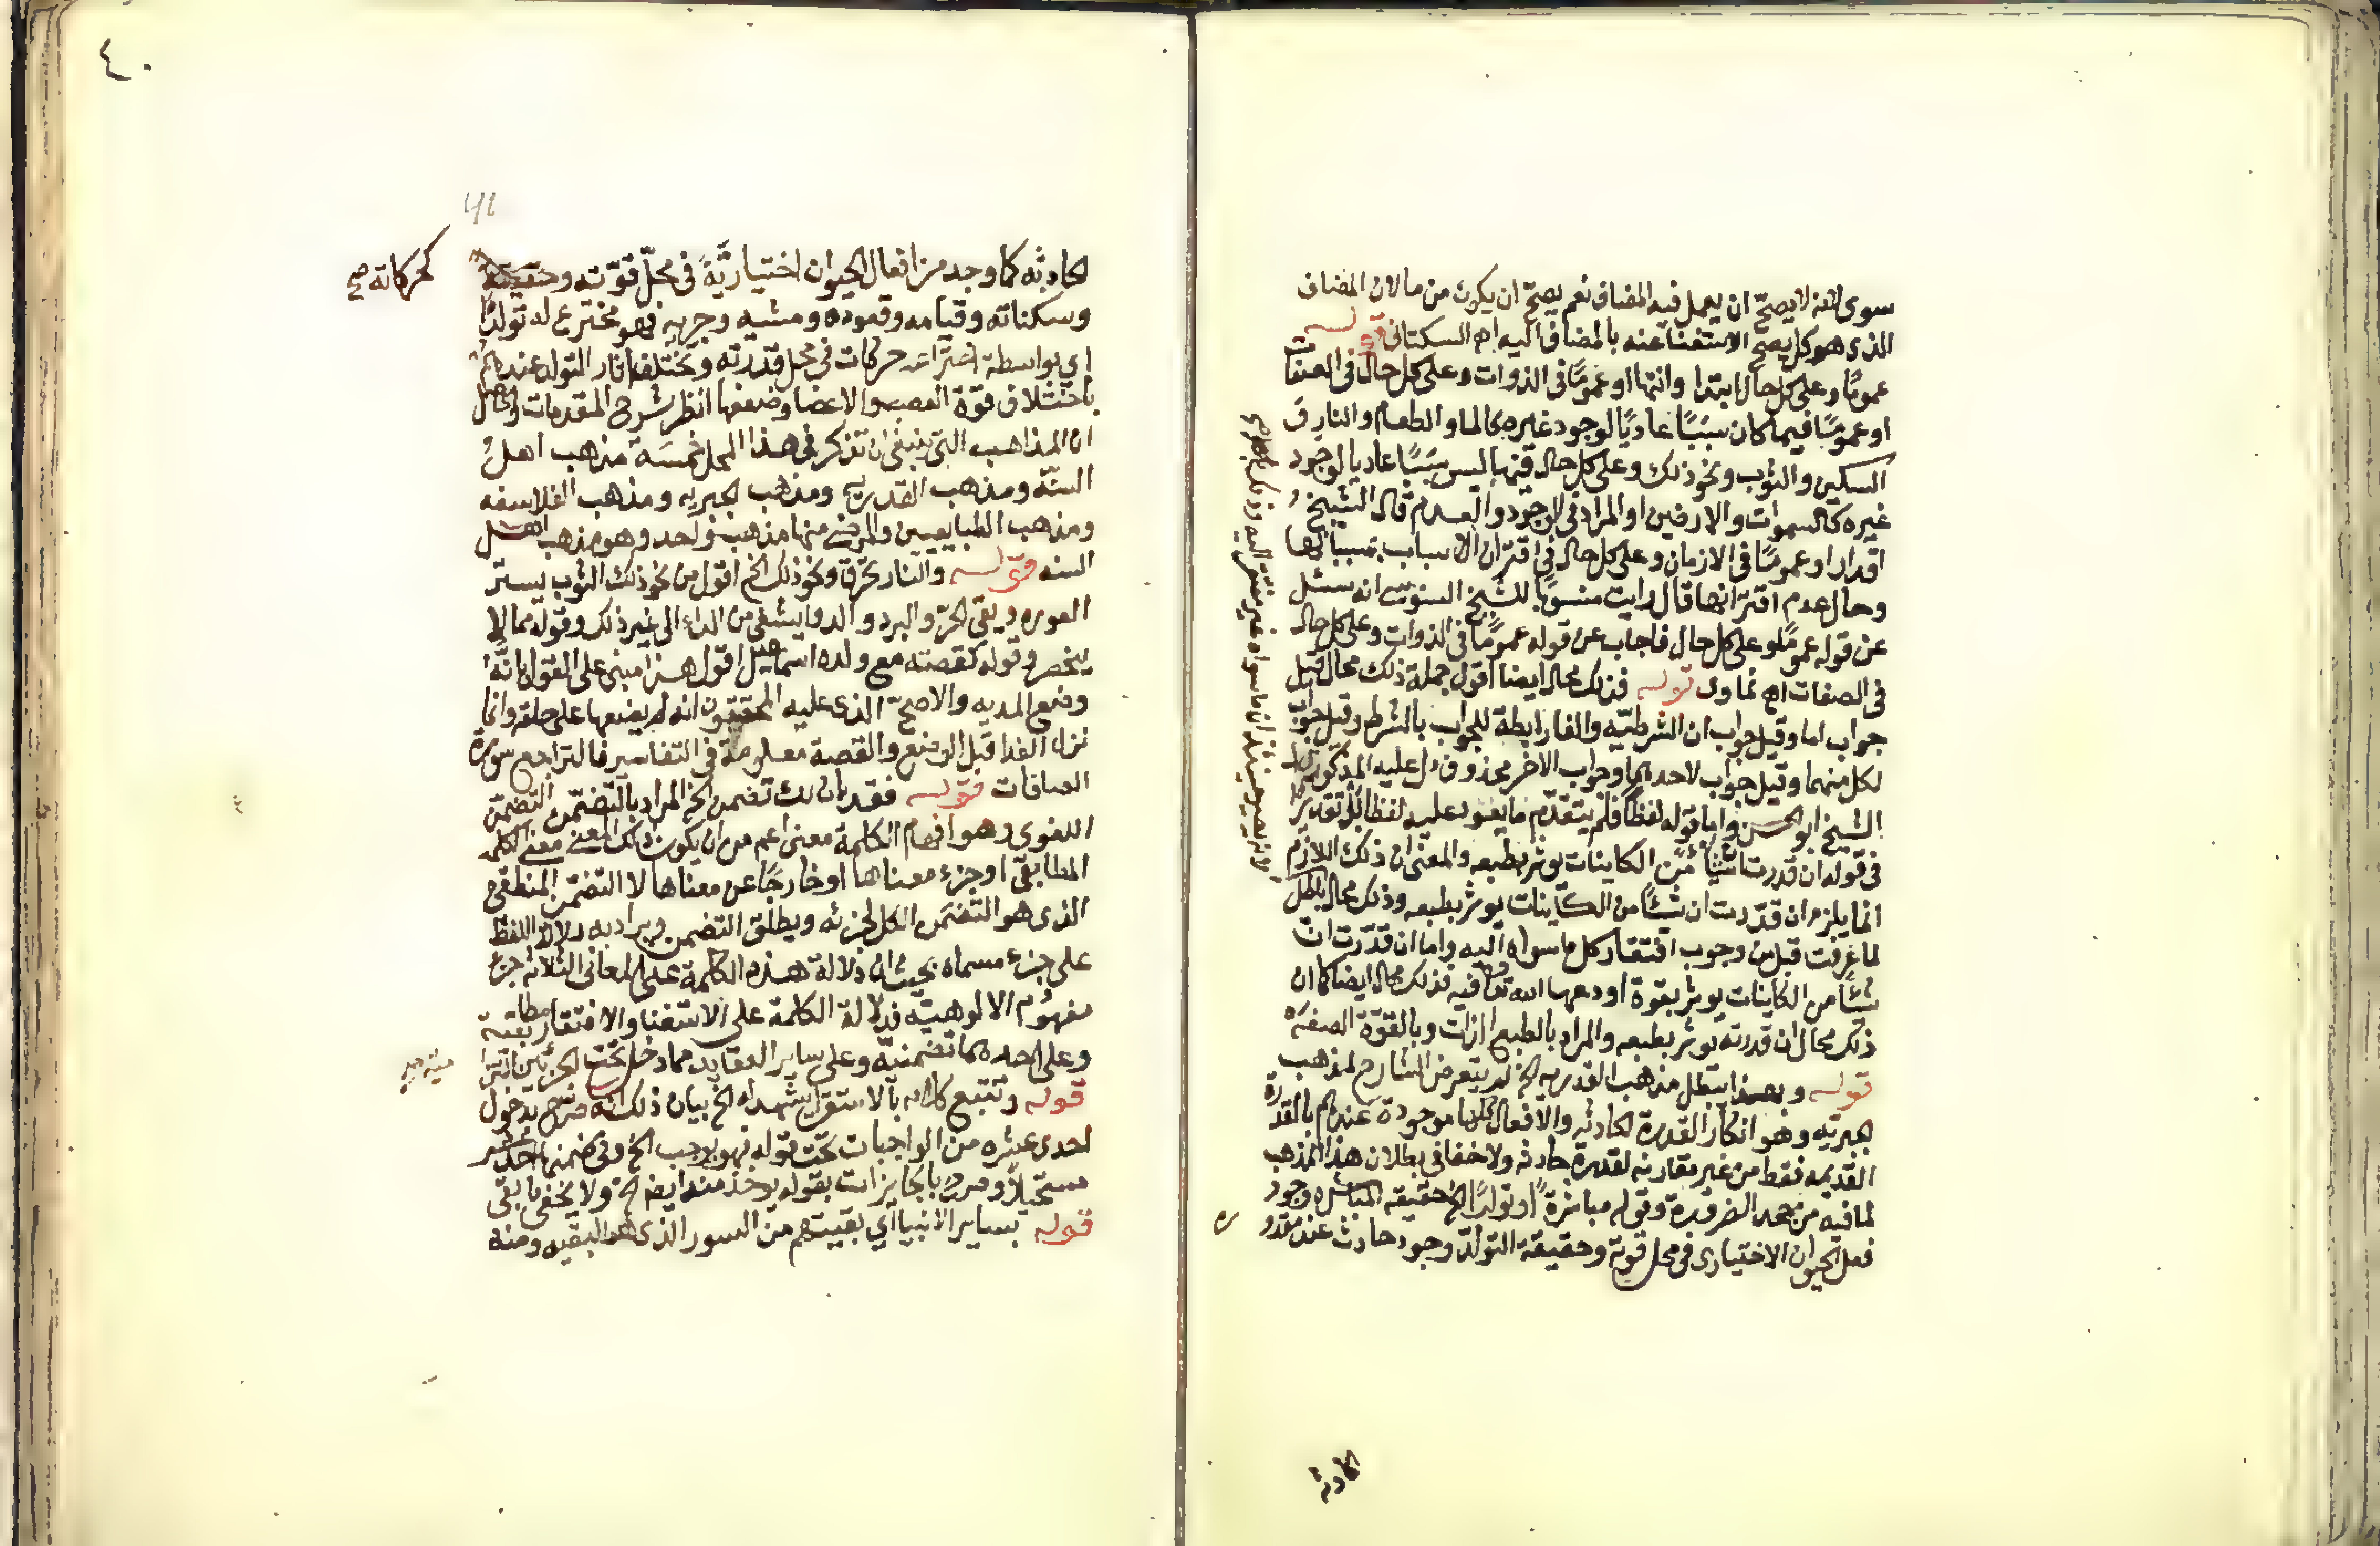 سوى لانه لا يصحّ ان يعمل فيه المضاف نعم يصحّ ان يكون من ما لان المضاف
الذى هو كل يصحّ الاستغنا عنه بالمضاف اليه اهـ السكتانى قوله
عمومًا وعلى كل حال ابتدا وانتها او عمومًا فى الذوات وعلى كل حال فى الصفات
او عمومًا فيما كان سببًا عاديًا لوجود غيره كالما والطعام والنار و
السكين والثوب ونحو ذلك وعلى كل حال فيما ليس سببًا عاديا لوجود
غيره كالسموات والارضين او المراد فى الوجود والعدم قال الشيخ
اقدار او عمومًا فى الازمان وعلى كل حال فى اقتران الاسباب بمسبباتها
وحال عدم اقترانها قال رايت منسوبًا للشيخ السنوسى انه سئل
عن قوله عمومًا وعلى كل حال فاجاب عن قوله عمومًا فى الذوات وعلى كل حال
فى الصفات اهـ قوله فذلك محال ايضا اقول جملة ذلك محال قيل
جواب اما وقيل جواب ان الشرطيّه والفا رابطة للجواب بالشرط وقيل جواب
لكل منهما وقيل جواب لاحدهما وجواب الاخر محذوف دل عليه المذكور
الشيخ ابو الحسن واما قوله لفظًا فلم يتقدّم ما يعود عليه لفظا بل تقديرًا
فى قوله ان قدرت شيئا من الكاينات يوثر بطبعه والمعنى ان ذلك اللازم
انما يلزم ان قدّرت ان شيئًا من الكاينات يوثر بطبعه وذلك محال باطل
لما عرفت قبل من وجوب افتقار كل ما سواه اليه واما ان قدّرت ان
شيئًا من الكاينات يوثر بقوة اودعها الله تعا فيه فذلك محال ايضا كما ان
ذلك محال ان قدرته يوثر بطبعه والمراد بالطبع الذات وبالقوّة الصفه
قوله وبهذا يبطل مذهب القدريه الخ لم يتعرض الشارح لمذهب
الجبريّه وهو انكار القدرة الحادثه والافعال كلها موجودة عندهم بالقدرة
القديمه فقط من غير مقارنه لقدرة حادثه ولا خفا فى بطلان هذا المذهب
لما فيه من جحد الضرورة وقوله مباشرة او تولدًا الخ حقيقه المباشره وجود
فعل الحيوان الاختيارى فى محل قوته وحقيقة التولد وجود حادث عند مقدور
الحادثه
٤٠
41
الحادثه كما وجد من افعال الحيوان اختياريّةً فى محلّ قوّته
كحركاته صح
وسكناته وقيامه وقعوده ومشيه وجريه فهو مخترع له تولدًا
اى بواسطة اختراعه حركات فى محل قدرته وتختلف اثار التولد عندهم
باختلاف قوّة العصب والاعضا وضعفها انظر شرح المقدمات والحاصل
ان المذاهب التى ينبغى ان تذكر فى هذا المحل خمسة مذهب اهل
السنّه ومذهب القدريه ومذهب الجبريه ومذهب الفلاسفه
ومذهب الطبايعيين والمرضى منها مذهب واحد وهو مذهب اهل
السنه قوله والنار تحرق ونحو ذلك الخ اقول من نحو ذلك الثوب يستر
العوره ويقى الحرّ والبرد والدوا يشفى من الداء الى غير ذلك وقوله مما لا
ينحصر وقوله كقصته مع ولده اسماعيل اقول هذا مبنى على القول بانّه
وضع المديه والاصح الذى عليه المحققون انه لم يضعها على حلقه وانما
نزل الفدا قبل الوضع والقصة معلومة فى التفاسير فالتراجع سورة
الصافات قوله فقد بان لك تضمن الخ المراد بالتضمّن التضمّن
اللغوى وهو افهام الكلمة معنى اعم من ان يكون ذلك المعنى معنى الكلمه
المطابقى او جزء معناها او خارجًا عن معناها لا التضمّن المنطقى
الذى هو التضمن الكل لجزئه ويطلق التضمن ويراد به دلالة اللفظ
على جزء مسماه بحيث ان دلالة هذه الكلمة على المعانى الثلاثه جزء
مفهوم الالوهيّه فدلالة الكلمة على الاستغنا والافتقار مطابقية
وعلى احدهما تضمنيّه وعلى ساير العقايد مما دخل تحت الجزئين التزا
ميه صح
قوله وتتبع كلامه بالاستقرا يشهد له الخ بيان ذلك انه صرّح بدخول
احدى عشره من الواجبات تحت قوله فهو يوجب الخ وفى ضمنها احد عشر
مستحيلًا وصرح بالجايزات بقوله يوخذ منه ايضا الخ ولا يخفى ما بقى
قوله بساير الانبيا اى بقيتهم من السور الذى هو البقيه ومنه